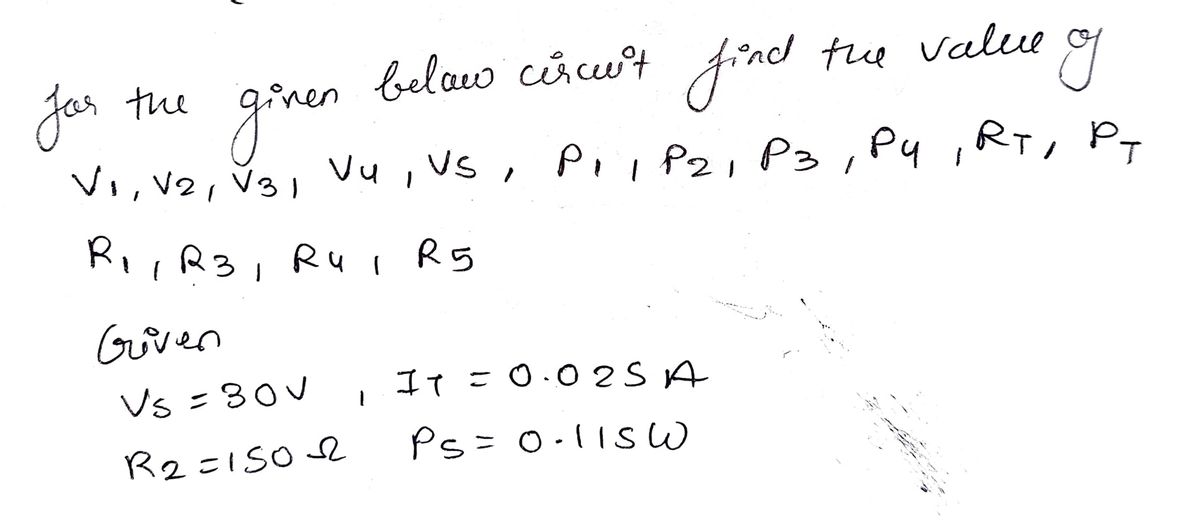 for the given below circuit find the value of
V1, V2, V3, V4, V5, P1, P2, P3, P4, RT, PT
R1, R3, R4, R5
Given
VS = 30V, IT = 0.025 A
R2 = 150 Ω P5 = 0.115W